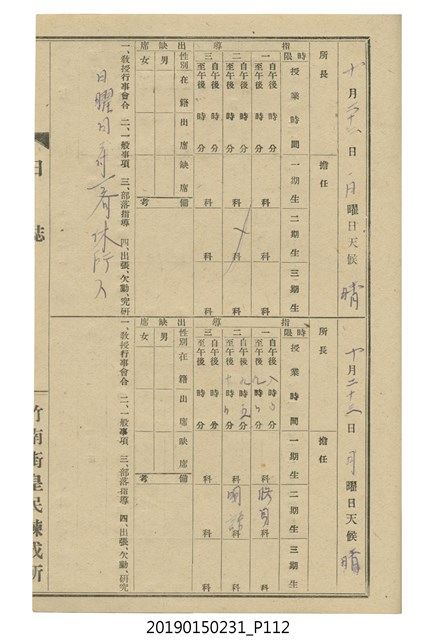 十月二十二日 日曜日天候 晴
所長 擔任
指導
時限 授業時間 一期生 二期生 三期生
一 自午後 時 分 至午後 時 分 科 科 科
二 自午後 時 分 至午後 時 分 科 科 科
三 自午後 時 分 至午後 時 分 科 科 科
出缺席
性別 在籍 出席 缺席 備考
男
女
一、教授行事會合 二、一般事項 三、部落指導 四、出張、欠勤、研究
日曜日
十月二十三日 月曜日天候 晴
所長 擔任
指導
時限 授業時間 一期生 二期生 三期生
一 自午後 八時 分 至午後 九時 分 科 修身科 科
二 自午後 九時 分 至午後 十時 分 科 國語科 科
三 自午後 時 分 至午後 時 分 科 科 科
出缺席
性別 在籍 出席 缺席 備考
男
女
一、教授行事會合 二、一般事項 三、部落指導 四、出張、欠勤、研究
日誌
竹南街皇民鍊成所
20190150231_P112